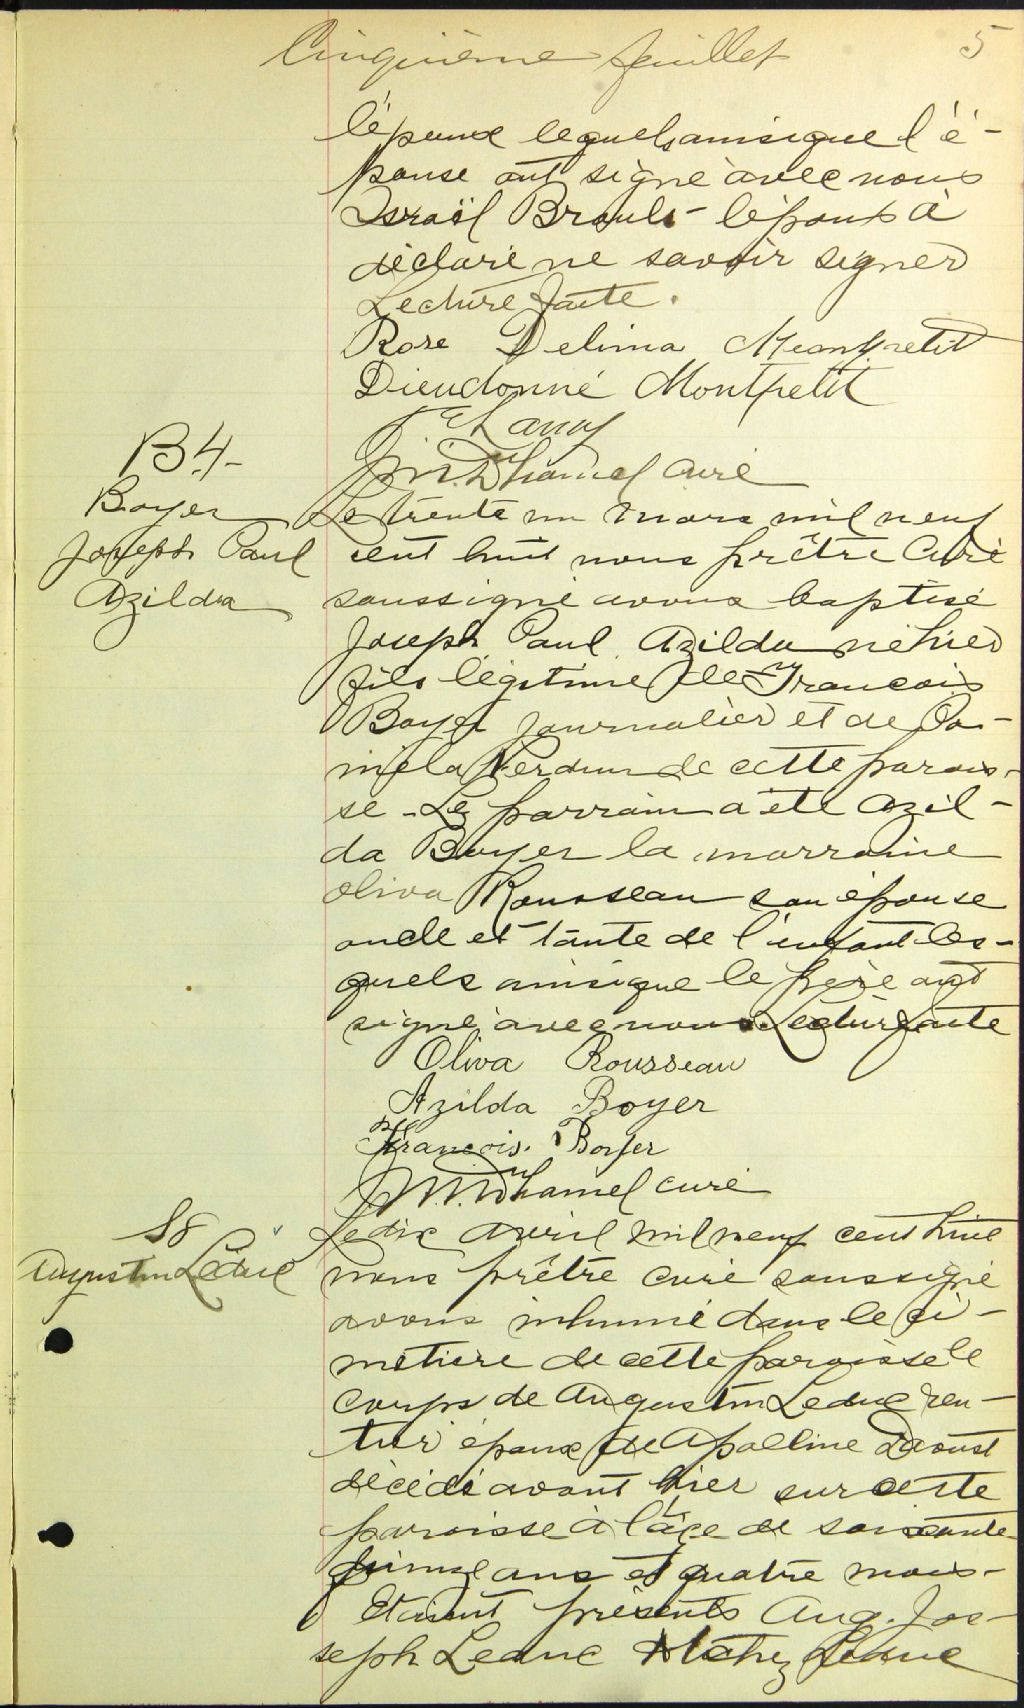 Cinquième feuillet 5
l'époux lequels ainsique l'é-
pouse ont signé avec nous
Israël Brault - l'époux a
déclaré ne savoir signer
Lecture faite.
Rose Delima Montpetit
Dieudonné Montpetit
curé
B.4-
Boyer
Joseph Paul
Azilda
Le trente un mars mil neuf
cent huit nous prêtre curé
soussigné avons baptisé
Joseph Paul Azilda né hier
fils légitime de François
Boyer journalier et de Pa-
méla Verdun de cette parois-
se - Le parrain a été Azil-
da Boyer la marraine
Oliva Rousseau son épouse
oncle et tante de l'enfant les-
quels ainsique le père ont
signé avec nous. Lecture faite
Oliva Rousseau
Azilda Boyer
François Boyer
Duhamel curé
S8
Augustin Leduc
Le dix avril mil neuf cent huit
nous prêtre curé soussigné
avons inhumé dans le ci-
metière de cette paroisse le
corps de Augustin Leduc ren-
tier époux de Apolline Daoust
décédé avant hier sur cette
paroisse à l'âge de soixante
quinze ans et quatre mois-
Etaient présents Aug. Jos-
seph Leduc Leduc